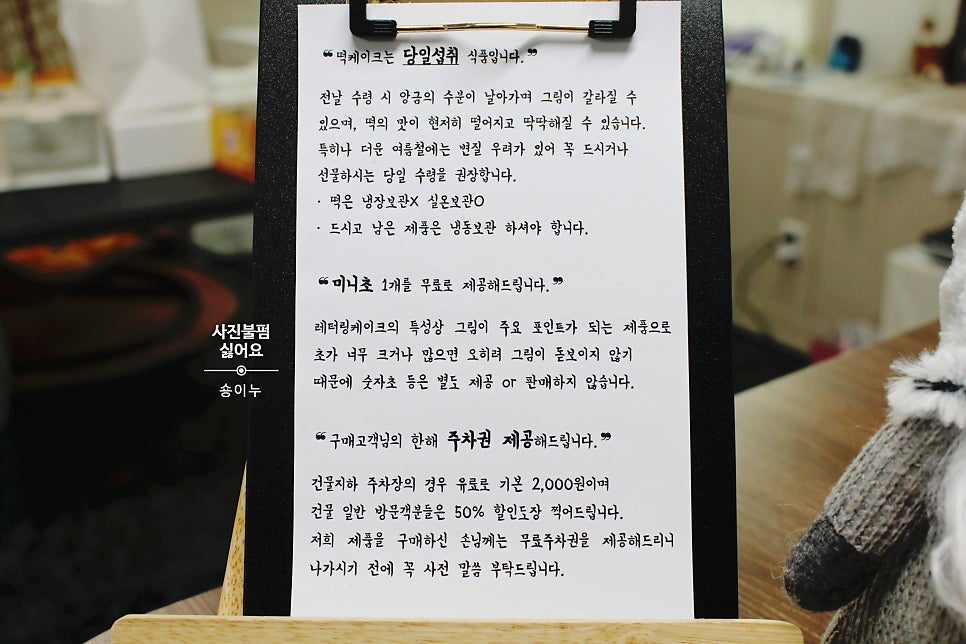 ❝떡케이크는 당일섭취 식품입니다.❞
전날 수령 시 앙금의 수분이 날아가며 그림이 갈라질 수
있으며, 떡의 맛이 현저히 떨어지고 딱딱해질 수 있습니다.
특히나 더운 여름철에는 변질 우려가 있어 꼭 드시거나
선물하시는 당일 수령을 권장합니다.
· 떡은 냉장보관X 실온보관O
· 드시고 남은 제품은 냉동보관 하셔야 합니다.
❝미니초 1개를 무료로 제공해드립니다.❞
레터링케이크의 특성상 그림이 주요 포인트가 되는 제품으로
초가 너무 크거나 많으면 오히려 그림이 돋보이지 않기
때문에 숫자초 등은 별도 제공 or 판매하지 않습니다.
❝구매고객님의 한해 주차권 제공해드립니다.❞
건물지하 주차장의 경우 유료로 기본 2,000원이며
건물 일반 방문객분들은 50% 할인도장 찍어드립니다.
저희 제품을 구매하신 손님께는 무료주차권을 제공해드리니
나가시기 전에 꼭 사전 말씀 부탁드립니다.
사진불펌
싫어요
숑이누